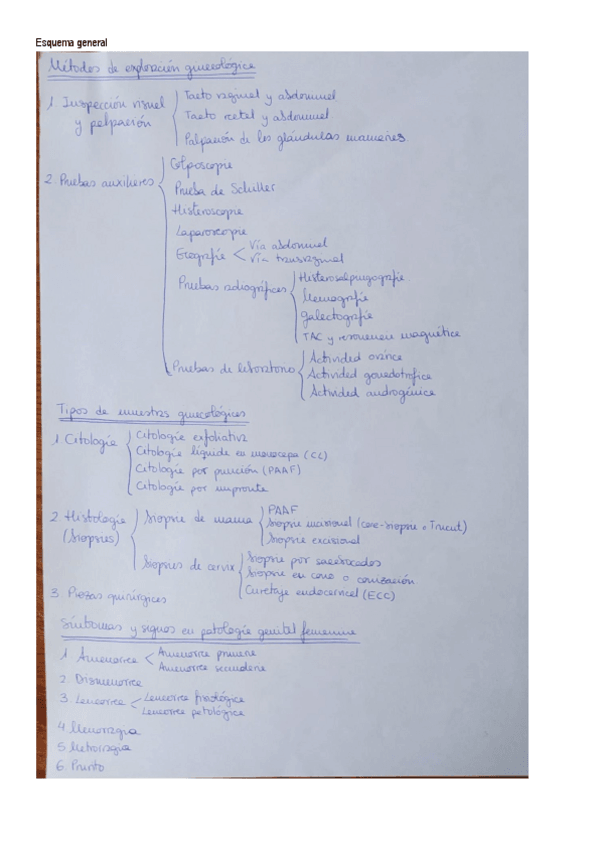 Esquema general
Métodos de exploración ginecológica
1. Inspección visual y palpación
Tacto vaginal y abdominal
Tacto rectal y abdominal
Palpación de las glándulas mamarias
2. Pruebas auxiliares
Colposcopia
Prueba de Schiller
Histeroscopia
Laparoscopia
Ecografía
Vía abdominal
Vía transvaginal
Pruebas radiográficas
Histerosalpingografía
Mamografía
Galactografía
TAC y resonancia magnética
Pruebas de laboratorio
Actividad ovárica
Actividad gonadotrófica
Actividad androgénica
Tipos de muestras ginecológicas
1 Citología
Citología exfoliativa
Citología líquida en monocapa (CC)
Citología por punción (PAAF)
Citología por impronta
2 Histología (Biopsias)
Biopsia de mama
PAAF
Biopsia incisional (core-biopsia o Trucut)
Biopsia excisional
Biopsias de cervix
Biopsia por sacabocados
Biopsia en cono o conización
Curetaje endocervical (ECC)
3. Piezas quirúrgicas
Síntomas y signos en patología genital femenina
1 Amenorrea
Amenorrea primaria
Amenorrea secundaria
2 Dismenorrea
3. Leucorrea
Leucorrea fisiológica
Leucorrea patológica
4 Menorragia
5 Metrorragia
6. Prurito